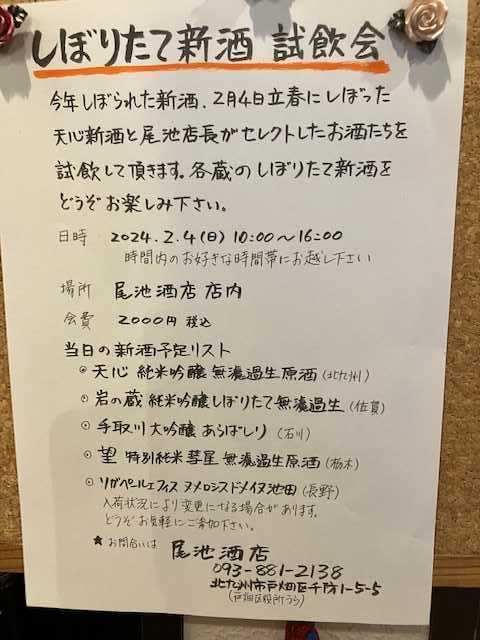 しぼりたて新酒 試飲会
今年しぼられた新酒、2月4日立春にしぼった
天心新酒と尾池店長がセレクトしたお酒たちを
試飲して頂きます。各蔵のしぼりたて新酒を
どうぞお楽しみ下さい。
日時 2024.2.4(日) 10:00〜16:00
時間内のお好きな時間帯にお越し下さい
場所 尾池酒店 店内
会費 2000円 税込
当日の新酒予定リスト
◎天心 純米吟醸 無濾過生原酒(北九州)
◎岩の蔵 純米吟醸しぼりたて無濾過生(佐賀)
◎手取川 大吟醸 あらばしり(石川)
◎望 特別純米 彗星 無濾過生原酒(栃木)
◎リガペールエフィス ヌメロシスドメイヌ池田(長野)
入荷状況により変更になる場合があります。
どうぞお気軽にご参加下さい。
★お問合いは 尾池酒店
093-881-2138
北九州市戸畑区千防1-5-5
(戸畑区役所うら)